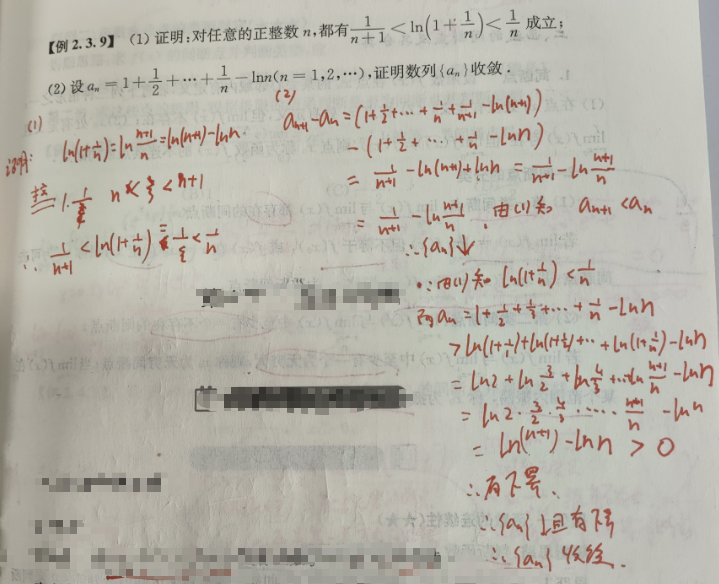 【例 2.3.9】 (1) 证明:对任意的正整数 n,都有 1/(n+1) < ln(1+1/n) < 1/n 成立;
(2) 设 aₙ = 1+1/2+⋯+1/n−lnn(n=1,2,⋯),证明数列{aₙ}收敛.
(1)
证明: ln(1+1/n)=ln (n+1)/n=ln(n+1)-lnn
1·1/ξ n<ξ<n+1
∴ 1/(n+1)<ln(1+1/n)=1/ξ<1/n
(2)
aₙ₊₁-aₙ=(1+1/2+⋯+1/n+1/(n+1)-ln(n+1))
-(1+1/2+⋯+1/n-lnn)
=1/(n+1)-ln(n+1)+lnn=1/(n+1)-ln (n+1)/n
=1/(n+1)-ln (n+1)/n, 由(1)知 aₙ₊₁<aₙ
∴{aₙ}↓
∵由(1)知 ln(1+1/n)<1/n
而aₙ=1+1/2+1/3+⋯+1/n-lnn
>ln(1+1/1)+ln(1+1/2)+⋯+ln(1+1/n)-lnn
=ln2+ln 3/2+ln 4/3+⋯+ln (n+1)/n-lnn
=ln2·3/2·4/3·⋯·(n+1)/n-lnn
=ln(n+1)-lnn>0
∴有下界.
∴{aₙ}↓且有下界
∴{aₙ}收敛.